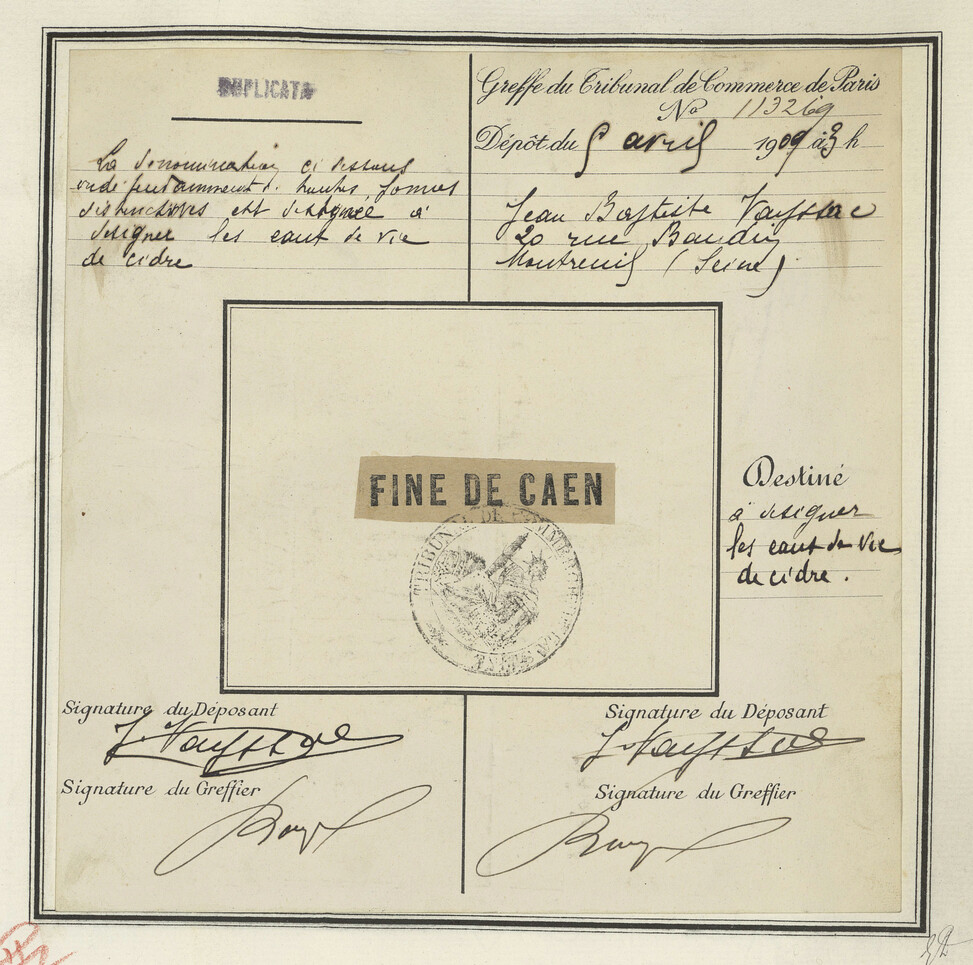 DUPLICATA
La denomination ci dessous
independamment de toutes formes
distinctives est destinée à
designer les eaux de vie
de cidre
Greffe du Tribunal de Commerce de Paris
No 113269
Dépôt du avril 1909 à 3 h
Jean Baptiste Vayssac
20 rue Baudin
Montreuil (Seine)
FINE DE CAEN
TRIBUNAL DE COMMERCE DE LA SEINE
Destiné
à designer
les eaux de vie
de cidre.
Signature du Déposant
J. Vayssac
Signature du Greffier
Signature du Déposant
J. Vayssac
Signature du Greffier